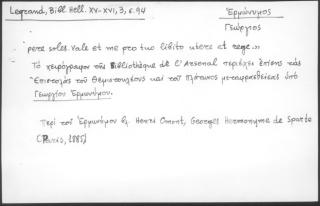 Legrand, Bibl. Hell. XV-XVI, 3, σ. 94
Ἑρμώνυμος
Γεώργιος
pere soles. Vale et me pro tuo libito utere et rege...
Τὸ χειρόγραφον τῆς Bibliothèque de l'Arsenal περιέχει ἐπίσης τὰς
Ἐπιστολὰς τοῦ Θεμιστοκλέους καὶ τοῦ Πλάτωνος μεταγραφείσας ὑπὸ
Γεωργίου Ἑρμωνύμου.
Περὶ τοῦ Ἑρμωνύμου βλ. Henri Omont, Georges Hermonyme de Sparte
(Paris, 1885)